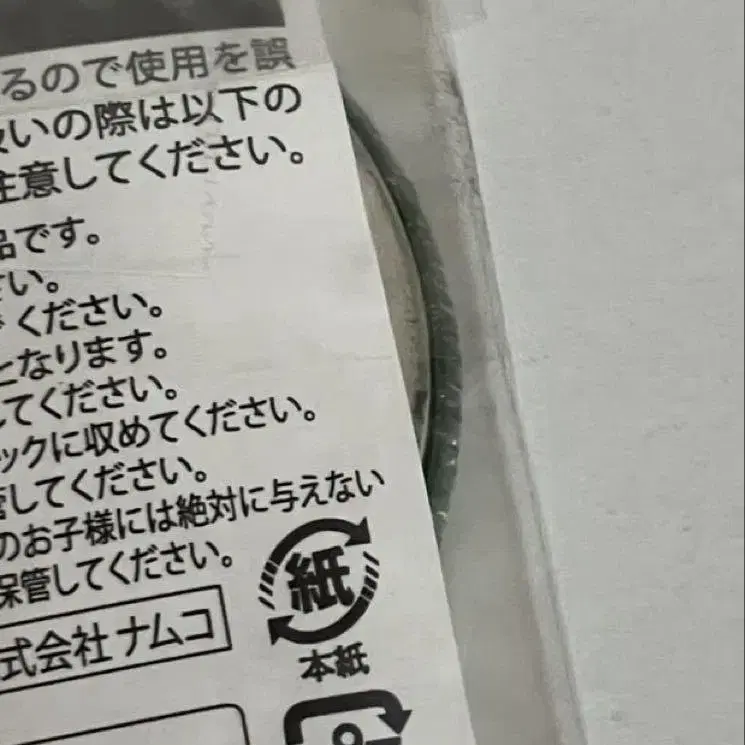 るので使用を誤
いの際は以下の
注意してください。
品です。
さい。
ください。
となります。
してください。
ックに収めてください。
管してください。
のお子様には絶対に与えない
保管してください。
式会社ナムコ
紙
本紙